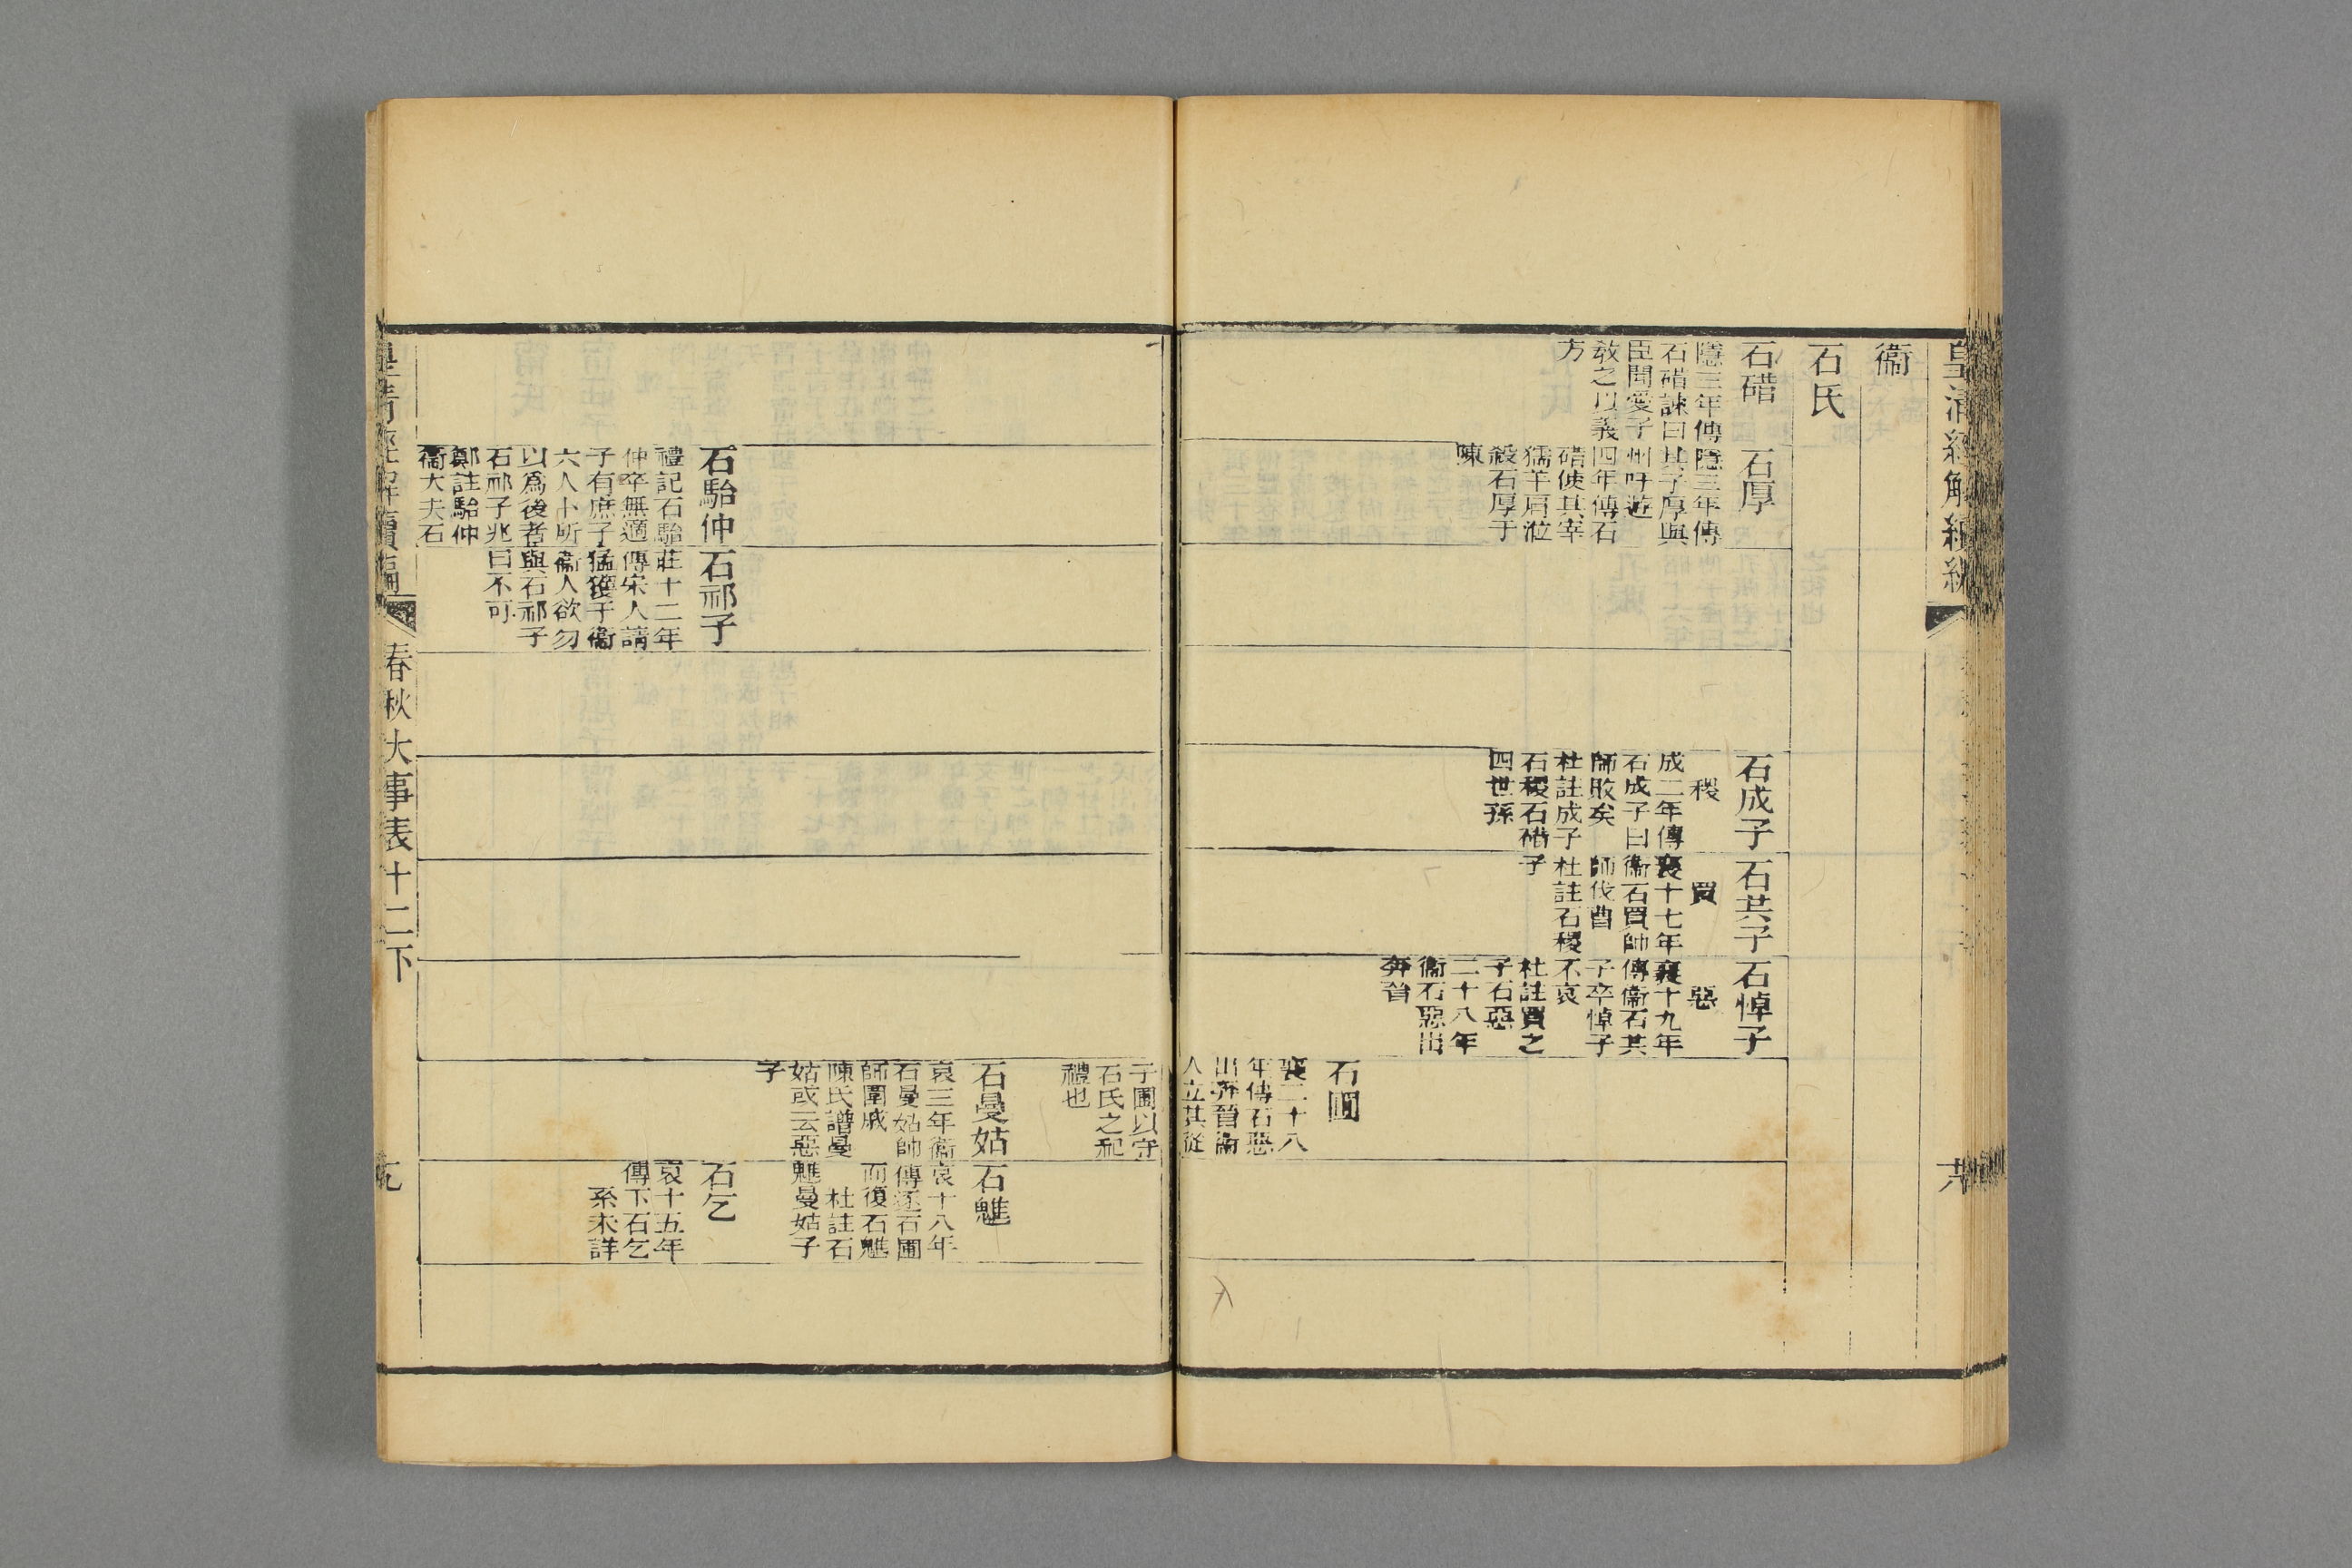 衞
石氏
石碏
隱三年傳
石碏諫曰
臣聞愛子
教之以義
方
石厚
隱三年傳
其子厚與
州吁遊
四年傳石
碏使其宰
獳羊肩涖
殺石厚于
陳
石成子
稷
成二年傳
石成子曰
師敗矣
杜註成子
石稷石碏
四世孫
石共子
買
襄十七年
衞石買帥
師伐曹
杜註石稷
子
石悼子
惡
襄十九年
傳衞石共
子卒悼子
不哀
杜註買之
子石惡
二十八年
衞石惡出
奔晉
石圃
襄二十八
年傳石惡
出奔晉衞
人立其從
子圃以守
石氏之祀
禮也
石曼姑
哀三年衞
石曼姑帥
師圍戚
陳氏譜曼
姑或云惡
子
石魋
哀十八年
傳逐石圃
而復石魋
杜註石
魋曼姑子
石駘仲
禮記石駘
仲卒無適
子有庶子
六人卜所
以爲後者
石祁子兆
鄭註駘仲
衞大夫石
石祁子
莊十二年
傳宋人請
猛獲于衞
衞人欲勿
與石祁子
曰不可
石乞
哀十五年
傳下石乞
系未詳
皇清經解續編
春秋大事表十二下